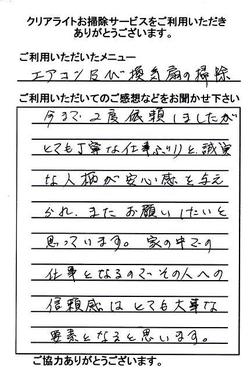 クリアライトお掃除サービスをご利用いただき
ありがとうございます。
ご利用いただいたメニュー
エアコン及び換気扇の掃除
ご利用いただいてのご感想などをお聞かせ下さい
今まで2度依頼しましたが
とても丁寧な仕事ぶりと、誠実
な人柄が安心感を与え
られ、またお願いしたいと
思っています。家の中での
仕事となるのでその人への
信頼感はとても大事な
要素となると思います。
ご協力ありがとうございます。